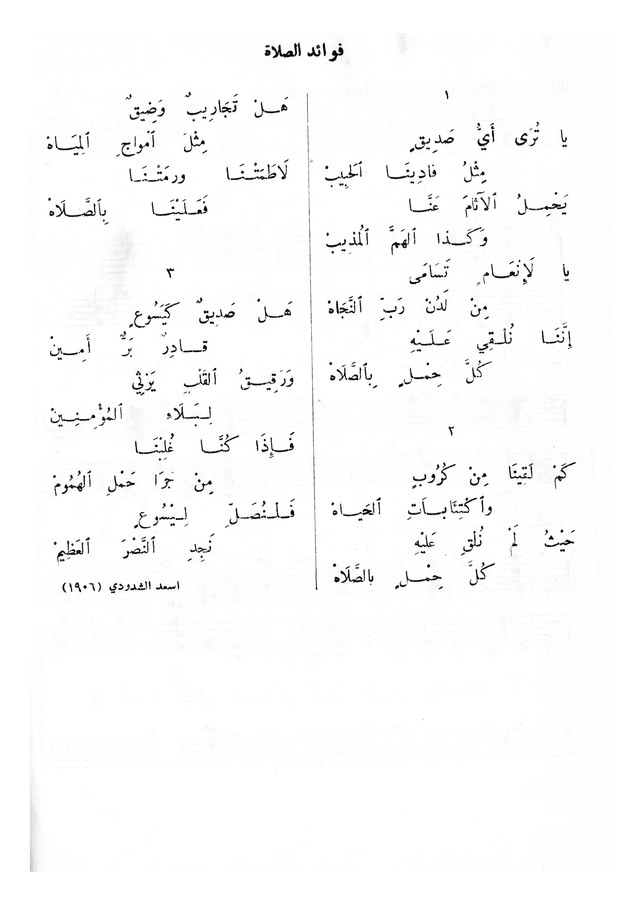 فوائد الصلاة
١
يا تُرَى أَيُّ صَدِيقٍ
مِثْلُ فادِينَا الحَبِيبْ
يَحْمِلُ الآثامَ عَنَّا
وَكَذا الهَمَّ المُذيبْ
يا لَإِنْعَامٍ تَسَامَى
مِنْ لَدُنْ رَبِّ النَّجَاهْ
إِنَّنَا نُلْقِي عَلَيْهِ
كُلَّ حِمْلٍ بِالصَّلاهْ
٢
كَمْ لَقِينَا مِنْ كُرُوبٍ
وَاكْتِئَابَاتِ الحَيَاهْ
حَيْثُ لَمْ نُلْقِ عَلَيْهِ
كُلَّ حِمْلٍ بالصَّلاهْ
هَلْ تَجَارِيبٌ وَضِيقٌ
مِثْلَ أَمْواجِ المِيَاهْ
لَاطَمَتْنَا ورمَتْنَا
فَعَلَيْنَا بِالصَّلاهْ
٣
هَلْ صَدِيقٌ كَيَسُوعٍ
قادِرٌ بَرٌّ أَمِينْ
وَرَقِيقُ القَلْبِ يَرْثِي
لِبَلَاءِ المُؤْمِنِينْ
فَإِذَا كُنَّا غُلِبْنَا
مِنْ جَرَا حَمْلِ الهُمُومْ
فَلْنُصَلِّ لِيَسُوعٍ
نَجِدِ النَّصْرَ العَظِيمْ
اسعد الشدودي (١٩٠٦)